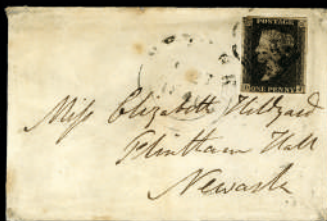 POSTAGE
ONE PENNY
Miss Elizabeth Hillyard
Flintham Hall
Newark